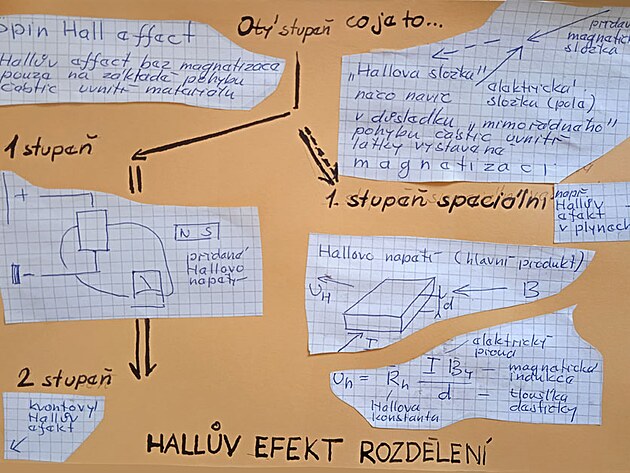 Spin Hall effect
Hallův effect bez magnetizace
pouze na základě pohybu
částic uvnitř materiálu
Otý stupeň co je to...
přídavná
magnetická
složka
„Hallova složka"
něco navíc
elektrická
složka (pole)
v důsledku „mimořádného"
pohybu částic uvnitř
látky vystavené
magnetizaci
1 stupeň
1. stupeň speciální
např.
Hallův
efekt
v plynech
+
N S
přidané
Hallovo
napětí
Hallovo napětí (hlavní produkt)
UH
d
B
I
elektrický
proud
Uh = Rh I By / d
magnetická
indukce
tloušťka
destičky
Hallova
konstanta
2 stupeň
kvantový
Hallův
efekt
HALLŮV EFEKT ROZDĚLENÍ